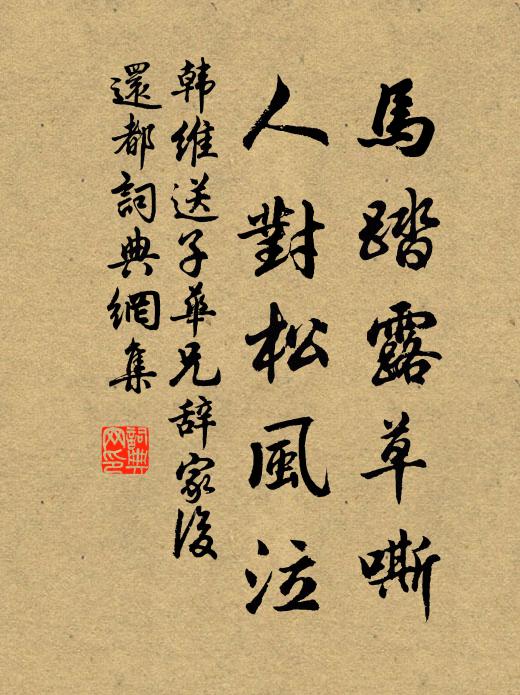 馬踏露草嘶
人對松風泣
韩維送子華兄辞家後
還都詞典網集
詞典
网印